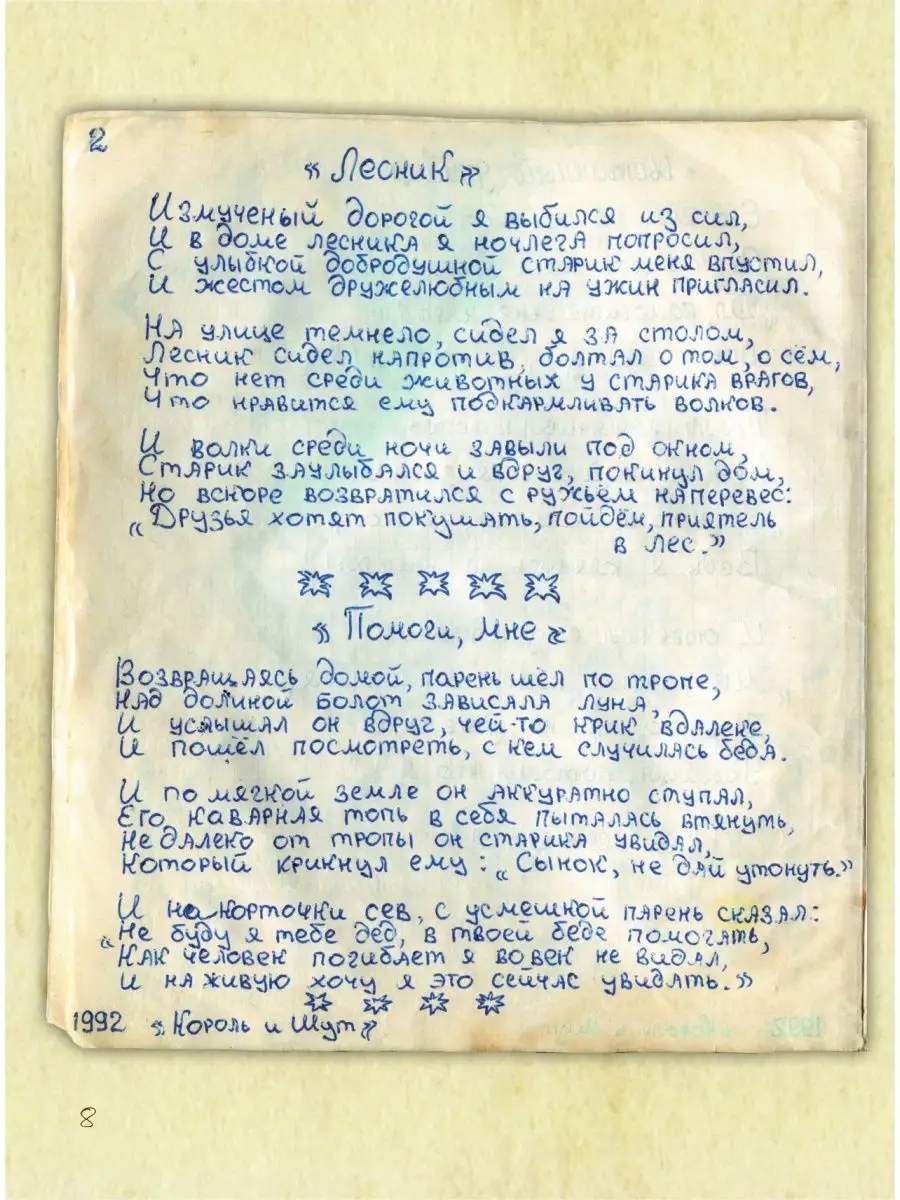 2
« Лесник »
Измученый дорогой я выбился из сил,
И в доме лесника я ночлега попросил,
С улыбкой добродушной старик меня впустил,
И жестом дружелюбным на ужин пригласил.
На улице темнело, сидел я за столом,
Лесник сидел напротив, болтал о том, о сём,
Что нет среди животных у старика врагов,
Что нравится ему подкармливать волков.
И волки среди ночи завыли под окном,
Старик заулыбался и вдруг, покинул дом,
Но вскоре возвратился с ружьём наперевес:
„Друзья хотят покушать, пойдём, приятель
в лес.”
« Помоги, мне »
Возвращаясь домой, парень шёл по тропе,
Над долиной болот зависала луна,
И услышал он вдруг, чей-то крик вдалеке,
И пошёл посмотреть, с кем случилась беда.
И по мягкой земле он аккуратно ступал,
Его каварная топь в себя пыталась втянуть,
Не далеко от тропы он старика увидал,
Который крикнул ему: „Сынок, не дай утонуть.”
И на корточки сев, с усмешкой парень сказал:
„Не буду я тебе дед, в твоей беде помогать,
Как человек погибает я во век не видал,
И на живую хочу я это сейчас увидать.”
1992 «Король и Шут»
8